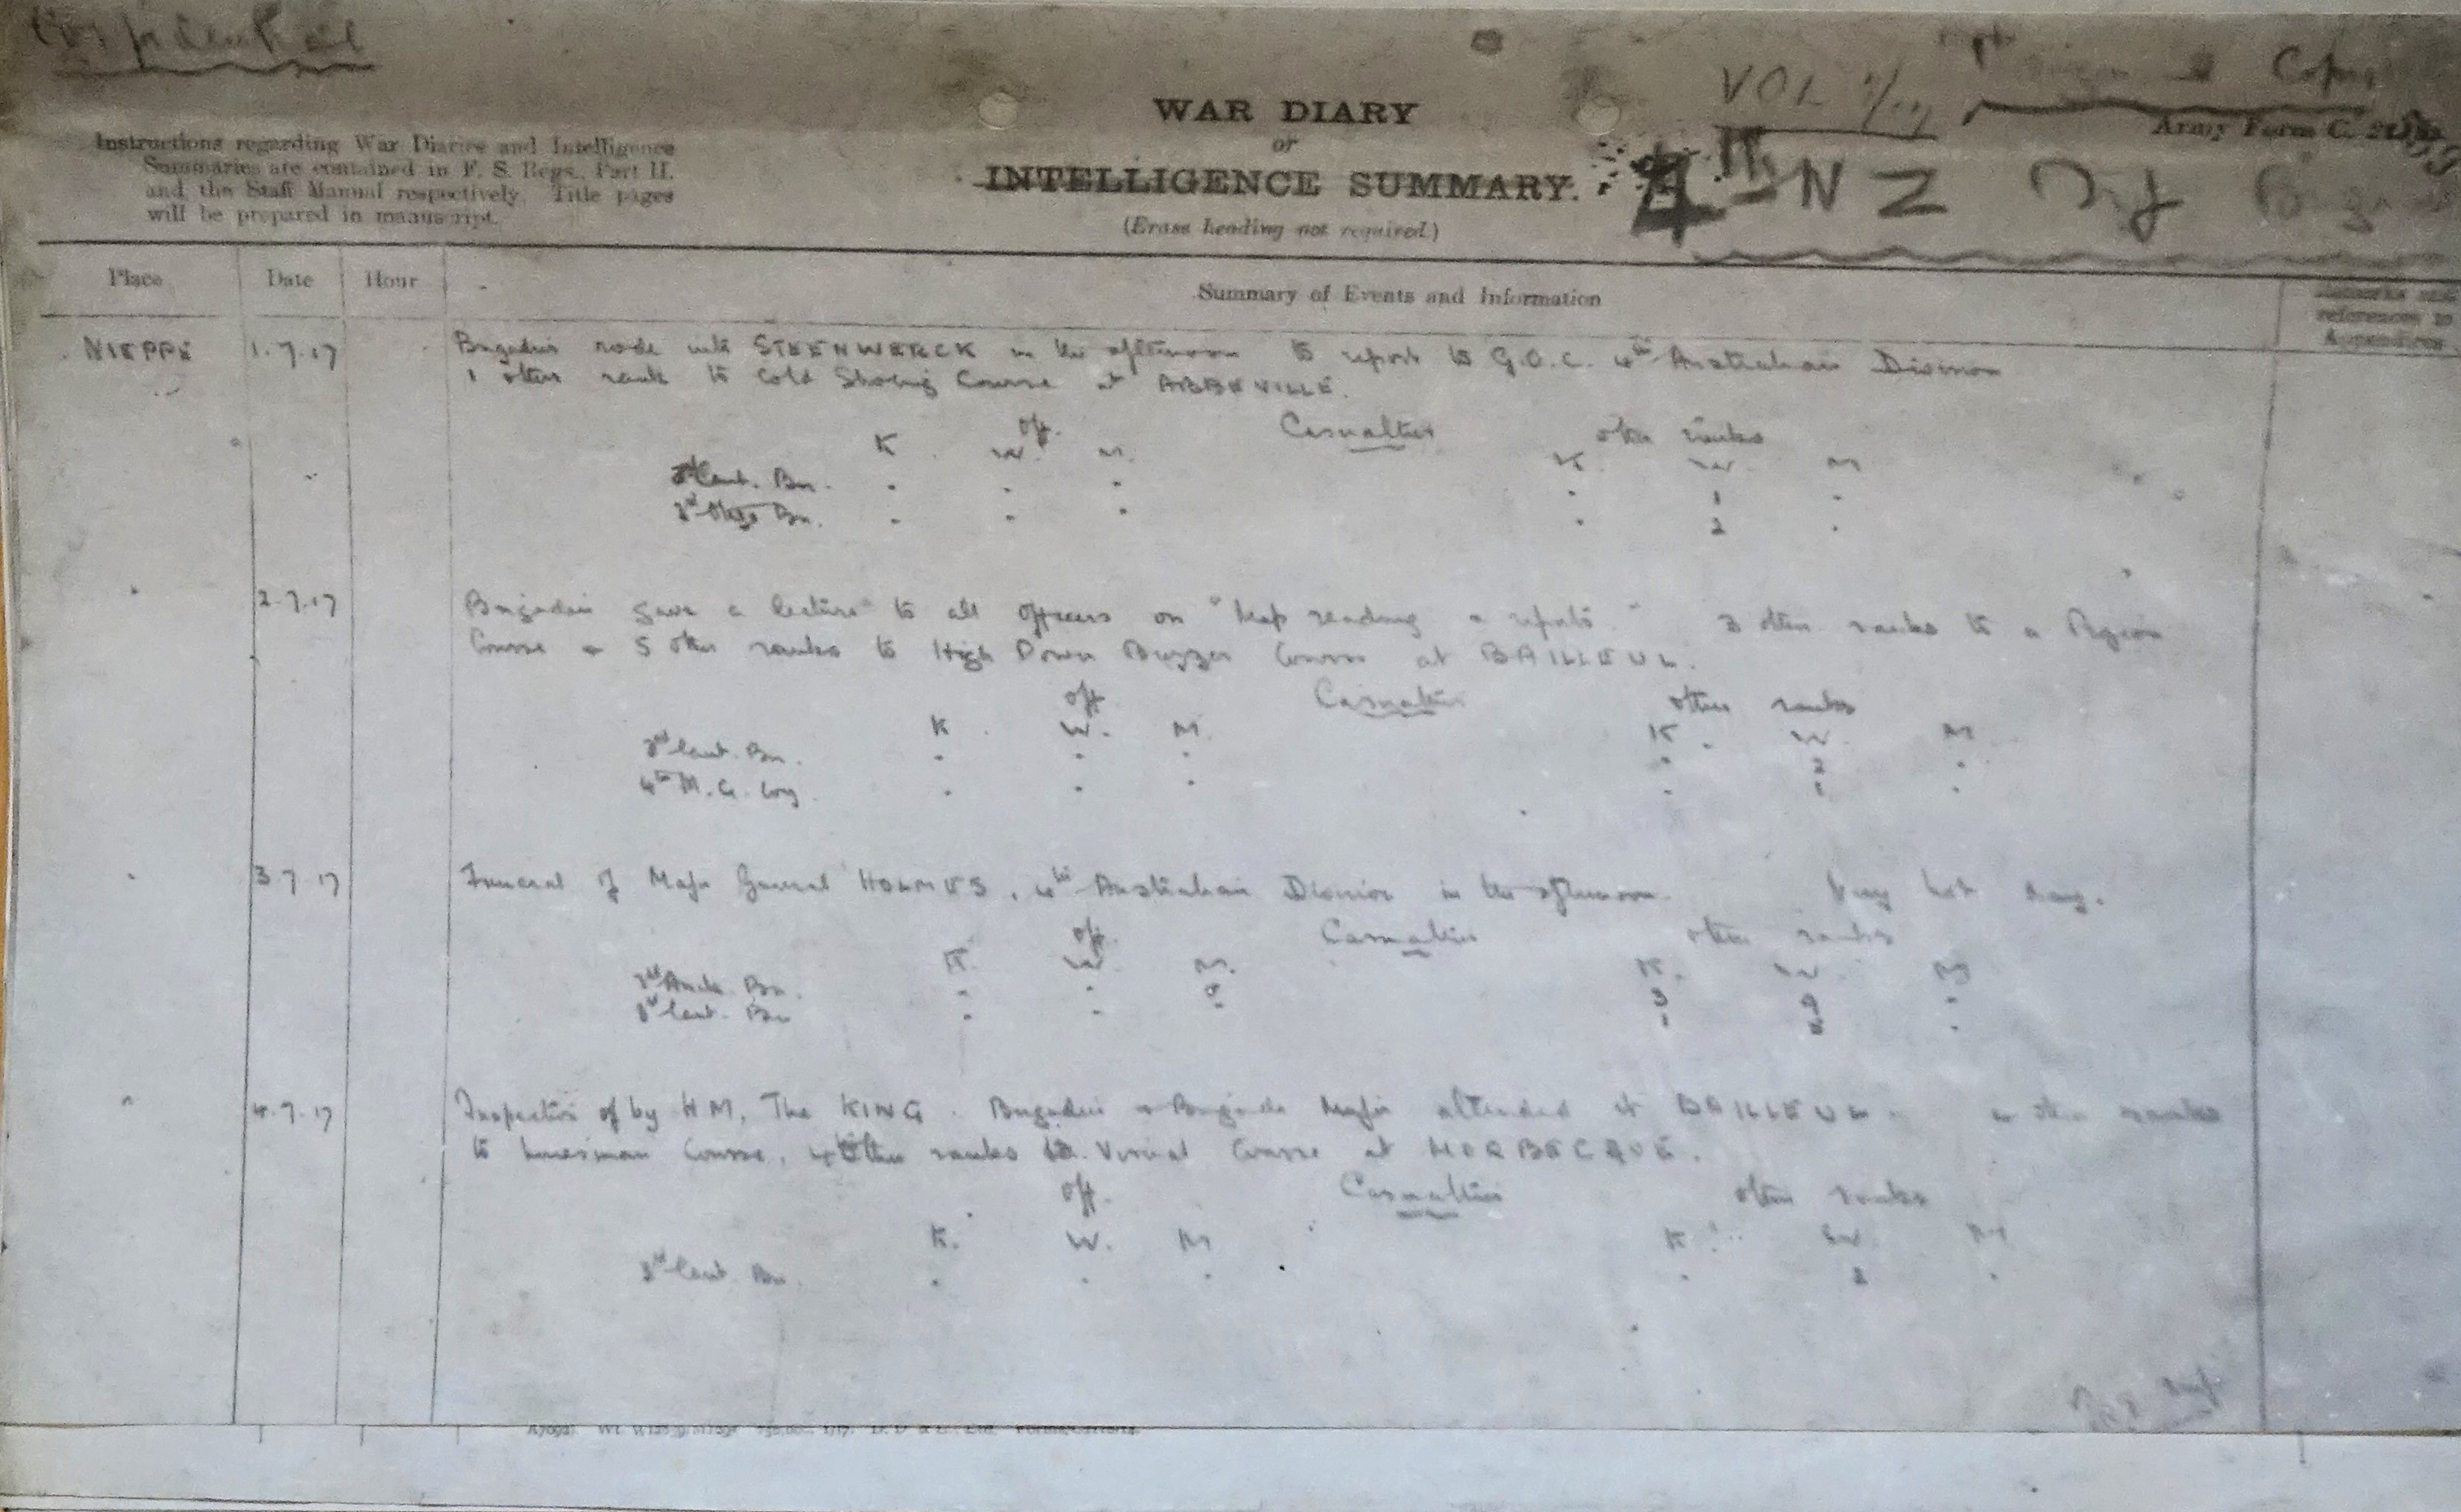 Confidential
VOL
Copy
WAR DIARY
Army Form C.
or
INTELLIGENCE SUMMARY.
(Erase heading not required.)
4th NZ
Instructions regarding War Diaries and Intelligence
Summaries are contained in F. S. Regs., Part II.
and the Staff Manual respectively. Title pages
will be prepared in manuscript.
Place Date Hour Summary of Events and Information Remarks and
references to
Appendices
NIEPPE 1.7.17 Brigadier rode into STEENWERCK in the afternoon to report to G.O.C. 4th Australian Division
1 other rank to Cold Shoeing Course at ABBEVILLE.
Off. Casualties other ranks
K W. M. K W M
3rd Cant. Bn. - - - - 1 -
3rd Otago Bn. - - - - 2 -
" 2.7.17 Brigadier gave a lecture to all officers on "Map reading & reports." 3 other ranks to a Pigeon
Course & 5 other ranks to High Power Buzzer Course at BAILLEUL.
Off Casualties other ranks
K. W. M. K. W. M
3rd Cant. Bn. - - - - 2 -
4th M.G. Coy. - - - - 1 -
" 3.7.17 Funeral of Major General HOLMES, 4th Australian Division in the afternoon. Very hot day.
Off. Casualties other ranks
K. W. M. K. W. M
3rd Auck. Bn. - - - 3 9 -
3rd Cant. Bn - - - 1 -
" 4.7.17 Inspection of by H.M. The KING. Brigadier & Brigade Major attended at BAILLEUL. 4 other ranks
to Linesman Course, 4 other ranks to Visual Course at MORBECQUE.
Off. Casualties other ranks
K. W. M K W. M
3rd Cant. Bn. - - - - 2 -